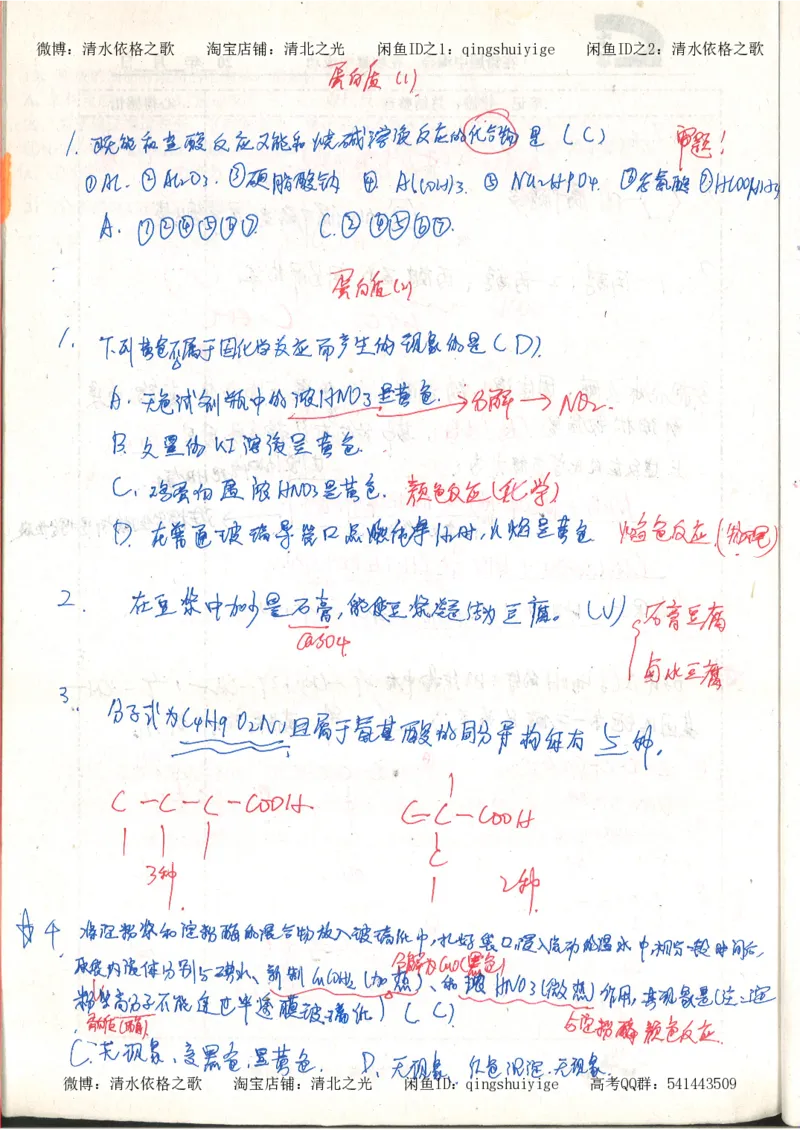 微博：清水依格之歌 淘宝店铺：清北之光 闲鱼ID之1：qingshuiyige 闲鱼ID之2：清水依格之歌
蛋白质（1）
1. 既能和盐酸反应又能和烧碱溶液反应的化合物是（C） 审题！
①Al. ②Al2O3. ③硬脂酸钠 ④ Al(OH)3. ⑤ Na2HPO4. ⑥谷氨酸 ⑦HCOONH4
A. ①②④⑤⑥⑦. C.② ④⑤⑥⑦.
蛋白质(2)
1. 下列黄色不属于因化学反应而产生的现象的是（D）.
A. 无色试剂瓶中的浓HNO3是黄色. →分解→ NO2.
B. 久置的KI溶液呈黄色.
C. 鸡蛋白遇浓HNO3是黄色. 颜色反应(化学)
D. 在普通玻璃导管口点燃纯净H2时,火焰呈黄色 焰色反应.(物理)
2. 在豆浆中加少量石膏,能使豆浆凝结为豆腐。（√） 石膏豆腐
CaSO4 卤水豆腐
3. 分子式为C4H9O2N且属于氨基酸的同分异构体有 5 种.
C-C-C-COOH C-C-COOH
C
3种 2种
☆4. 将淀粉浆和淀粉酶的混合物放入玻璃纸中,扎好袋口,浸入流动的温水中,相当一段时间后,
分解为CuO(黑色)
取袋内液体分别与碘水、新制Cu(OH)2(加热)、和浓HNO3(微热)作用,其现象是(注:淀
粉等高分子不能透过半透膜玻璃纸)（C）
与淀粉酶颜色反应.
C.无现象,变黑色,显黄色. D. 无现象 红色沉淀.无现象.
微博：清水依格之歌 淘宝店铺：清北之光 闲鱼ID：qingshuiyige 高考QQ群：541443509